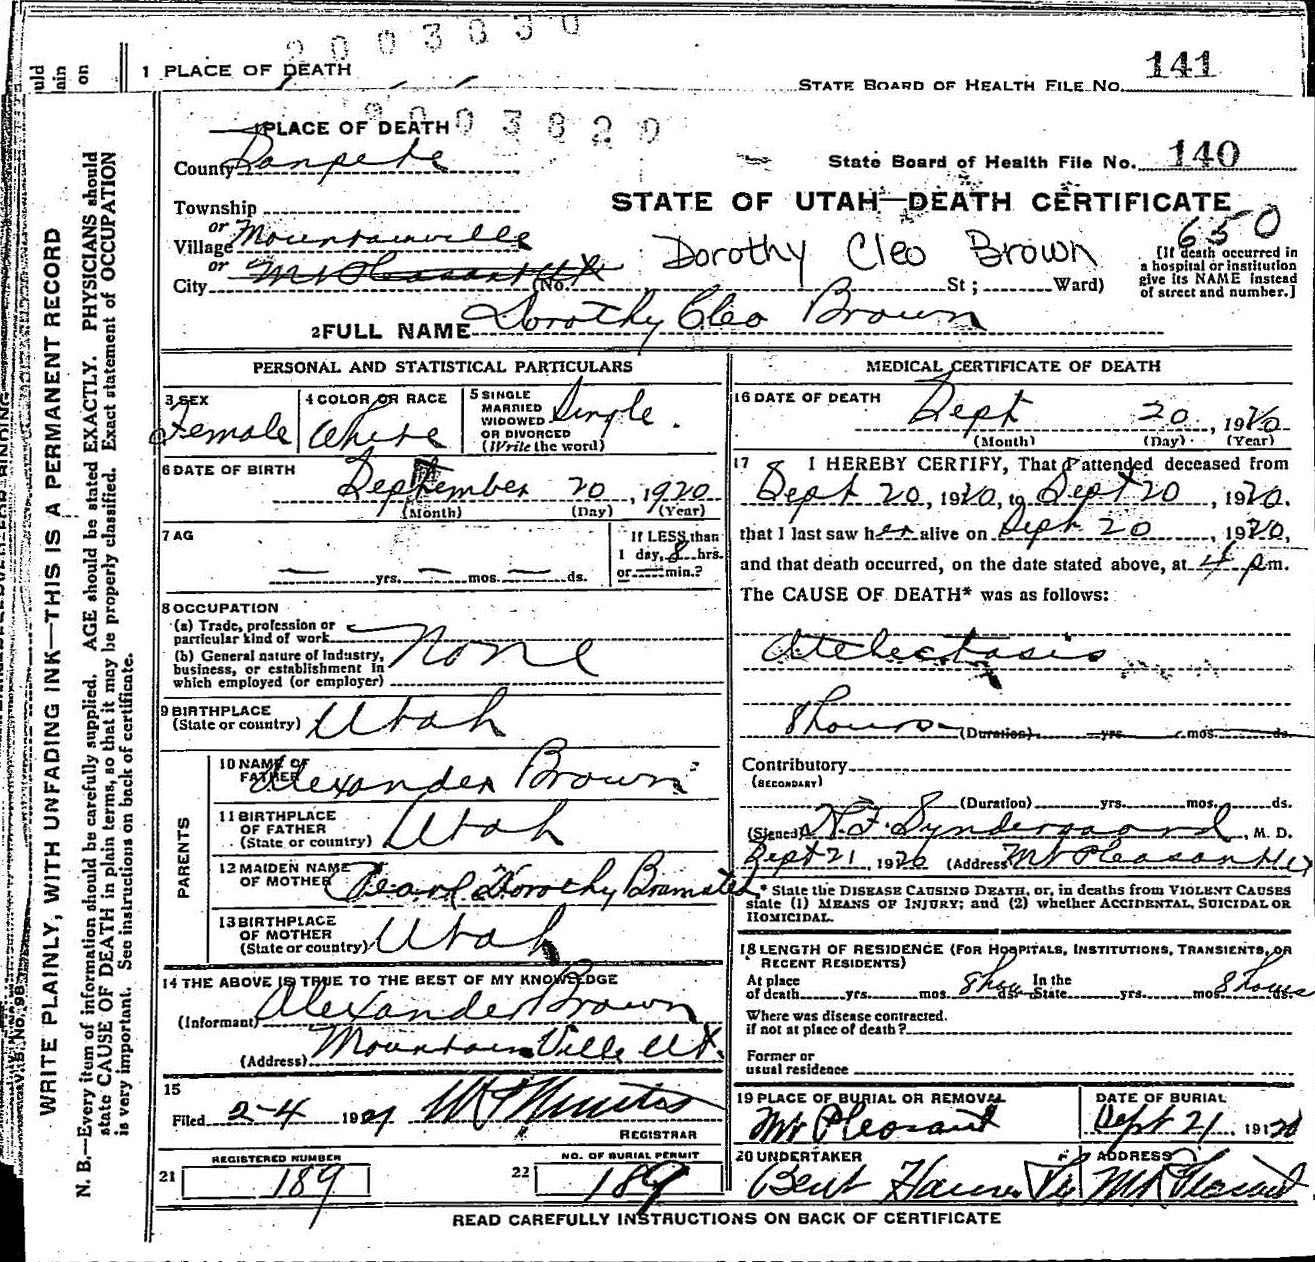 2003630
uld
ain
on
1 PLACE OF DEATH
STATE BOARD OF HEALTH FILE NO. 141
2003820
1 PLACE OF DEATH
County Sanpete
State Board of Health File No. 140
STATE OF UTAH—DEATH CERTIFICATE
650
Township
or
Village Mountainville
or
City Mt Pleasant Ut (No. St; Ward)
Dorothy Cleo Brown
[If death occurred in
a hospital or institution
give its NAME instead
of street and number.]
2 FULL NAME Dorothy Cleo Brown
WRITE PLAINLY, WITH UNFADING INK—THIS IS A PERMANENT RECORD
N. B.—Every item of information should be carefully supplied. AGE should be stated EXACTLY. PHYSICIANS should
state CAUSE OF DEATH in plain terms, so that it may be properly classified. Exact statement of OCCUPATION
is very important. See instructions on back of certificate.
PERSONAL AND STATISTICAL PARTICULARS
3 SEX
Female
4 COLOR OR RACE
White
5 SINGLE
MARRIED
WIDOWED
OR DIVORCED
(Write the word)
Single.
6 DATE OF BIRTH
September 20, 1920
(Month) (Day) (Year)
7 AG
— yrs. — mos. — ds.
If LESS than
1 day, 8 hrs.
or — min.?
8 OCCUPATION
(a) Trade, profession or
particular kind of work
(b) General nature of Industry,
business, or establishment in
which employed (or employer)
None
9 BIRTHPLACE
(State or country) Utah
PARENTS
10 NAME OF
FATHER Alexander Brown
11 BIRTHPLACE
OF FATHER
(State or country) Utah
12 MAIDEN NAME
OF MOTHER Pearl Dorothy Bramsted
13 BIRTHPLACE
OF MOTHER
(State or country) Utah
14 THE ABOVE IS TRUE TO THE BEST OF MY KNOWLEDGE
(Informant) Alexander Brown
(Address) Mountain Ville Ut.
15
Filed 2-4 1921
REGISTRAR
REGISTERED NUMBER
21 189
NO. OF BURIAL PERMIT
22 189
MEDICAL CERTIFICATE OF DEATH
16 DATE OF DEATH
Sept 20, 1920
(Month) (Day) (Year)
17 I HEREBY CERTIFY, That I attended deceased from
Sept 20, 1920, to Sept 20, 1920.
that I last saw her alive on Sept 20, 1920,
and that death occurred, on the date stated above, at 4 p m.
The CAUSE OF DEATH* was as follows:
Atelectasis
8 hours (Duration) yrs. mos. ds.
Contributory
(SECONDARY)
(Duration) yrs. mos. ds.
(Signed) Syndergaard, M. D.
Sept 21, 1920 (Address) Mt Pleasant
* State the DISEASE CAUSING DEATH, or, in deaths from VIOLENT CAUSES
state (1) MEANS OF INJURY; and (2) whether ACCIDENTAL, SUICIDAL OR
HOMICIDAL.
18 LENGTH OF RESIDENCE (FOR HOSPITALS, INSTITUTIONS, TRANSIENTS, OR
RECENT RESIDENTS)
At place
of death yrs. mos. 8 hours ds. In the
State yrs. mos. 8 hours ds.
Where was disease contracted.
if not at place of death?
Former or
usual residence
19 PLACE OF BURIAL OR REMOVAL
Mt Pleasant
DATE OF BURIAL
Sept 21, 1920
20 UNDERTAKER
Bent
ADDRESS
Mt Pleasant
READ CAREFULLY INSTRUCTIONS ON BACK OF CERTIFICATE